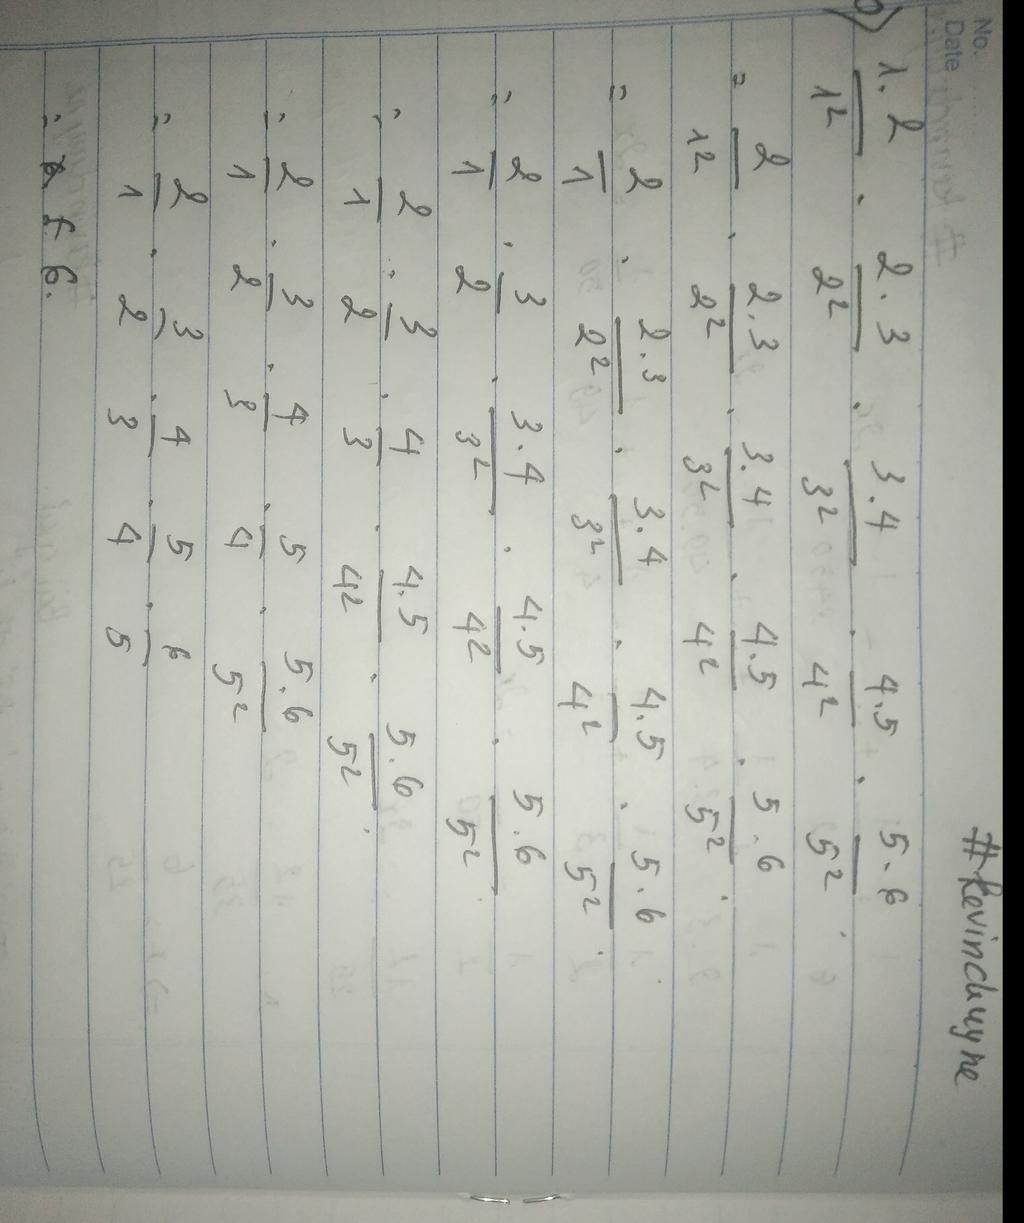 No:
Date
#Kevinchuyne
1.2/1² . 2.3/2² . 3.4/3² . 4.5/4² . 5.6/5²
= 2/1² . 2.3/2² . 3.4/3² . 4.5/4² . 5.6/5²
= 2/1 . 2.3/2² . 3.4/3² . 4.5/4² . 5.6/5²
= 2/1 . 3/2 . 3.4/3² . 4.5/4² . 5.6/5²
= 2/1 . 3/2 . 4/3 . 4.5/4² . 5.6/5²
= 2/1 . 3/2 . 4/3 . 5/4 . 5.6/5²
= 2/1 . 3/2 . 4/3 . 5/4 . 6/5
= 6.